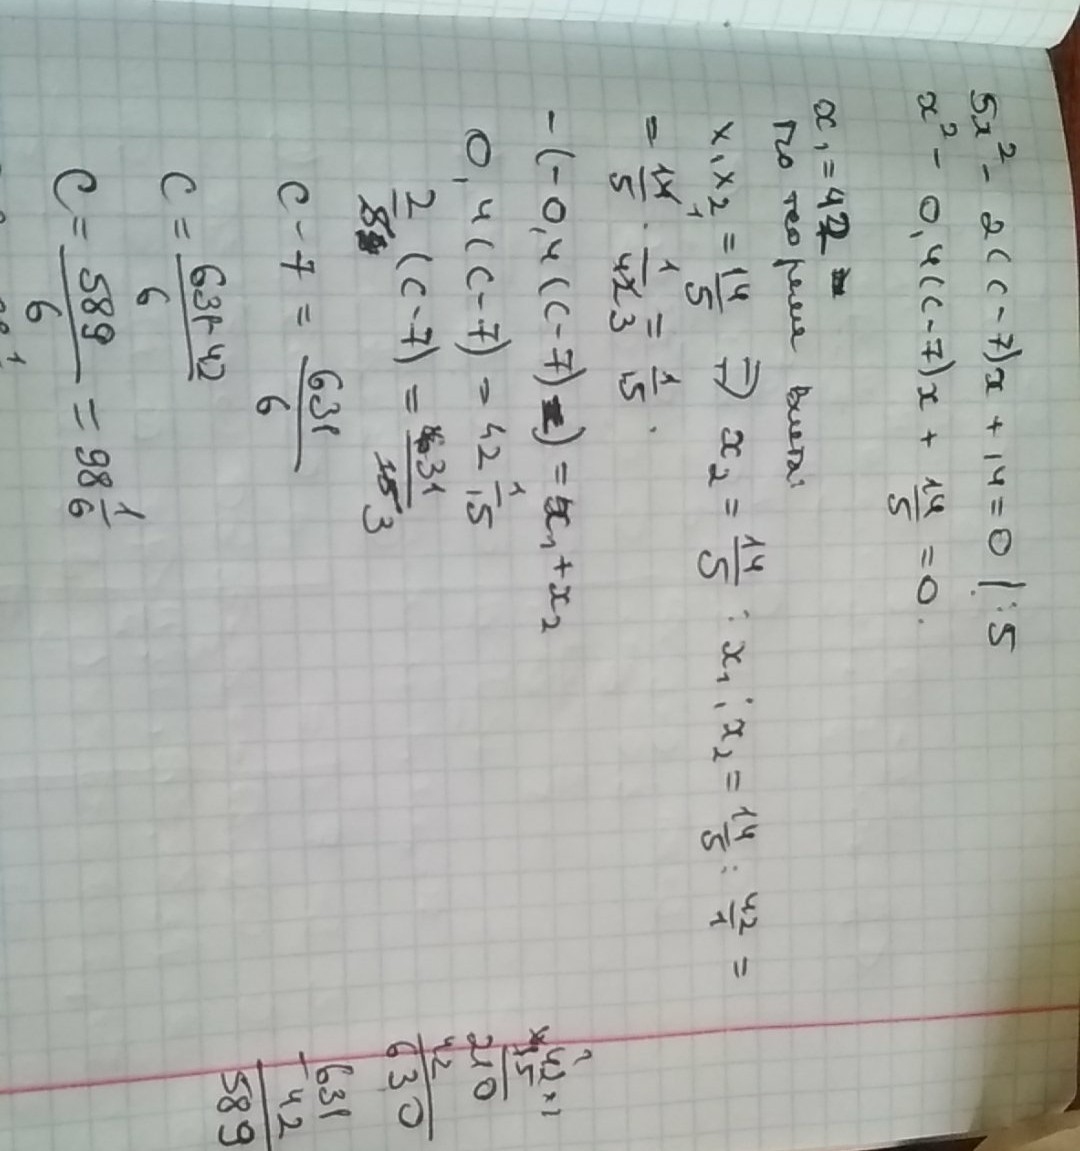 5x² - 2(c-7)x + 14 = 0 |:5
x² - 0,4(c-7)x + 14/5 = 0.
x₁ = 42
по теореме Виета:
x₁x₂ = 14/5 ⇒ x₂ = 14/5 : x₁; x₂ = 14/5 : 42/1 =
= 14/5 · 1/42 3 = 1/15.
-(-0,4(c-7)) = x₁ + x₂
0,4(c-7) = 42 1/15
2/5 (c-7) = 631/15 3
c - 7 = 631/6
c = 631-42/6
c = 589/6 = 98 1/6
42
×15
210
42
630
631
-42
589